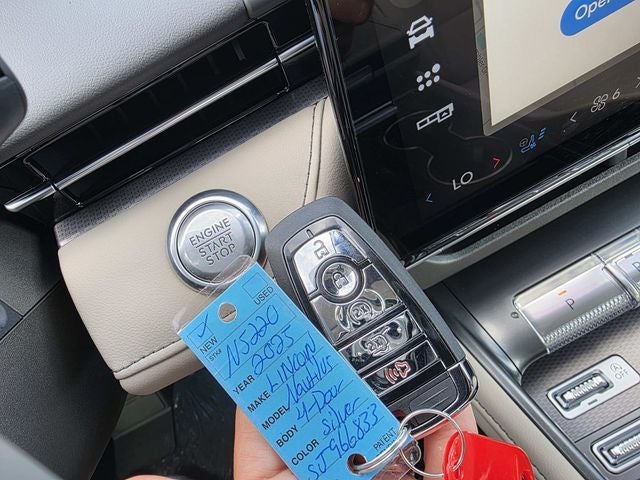 Open
6
LO
P
A
OFF
ENGINE
START
STOP
NEW
USED
STK# N5220
YEAR 2025
MAKE LINCOLN
MODEL Nautilus
BODY 4-Door
COLOR Silver
SJ966833
PATENT